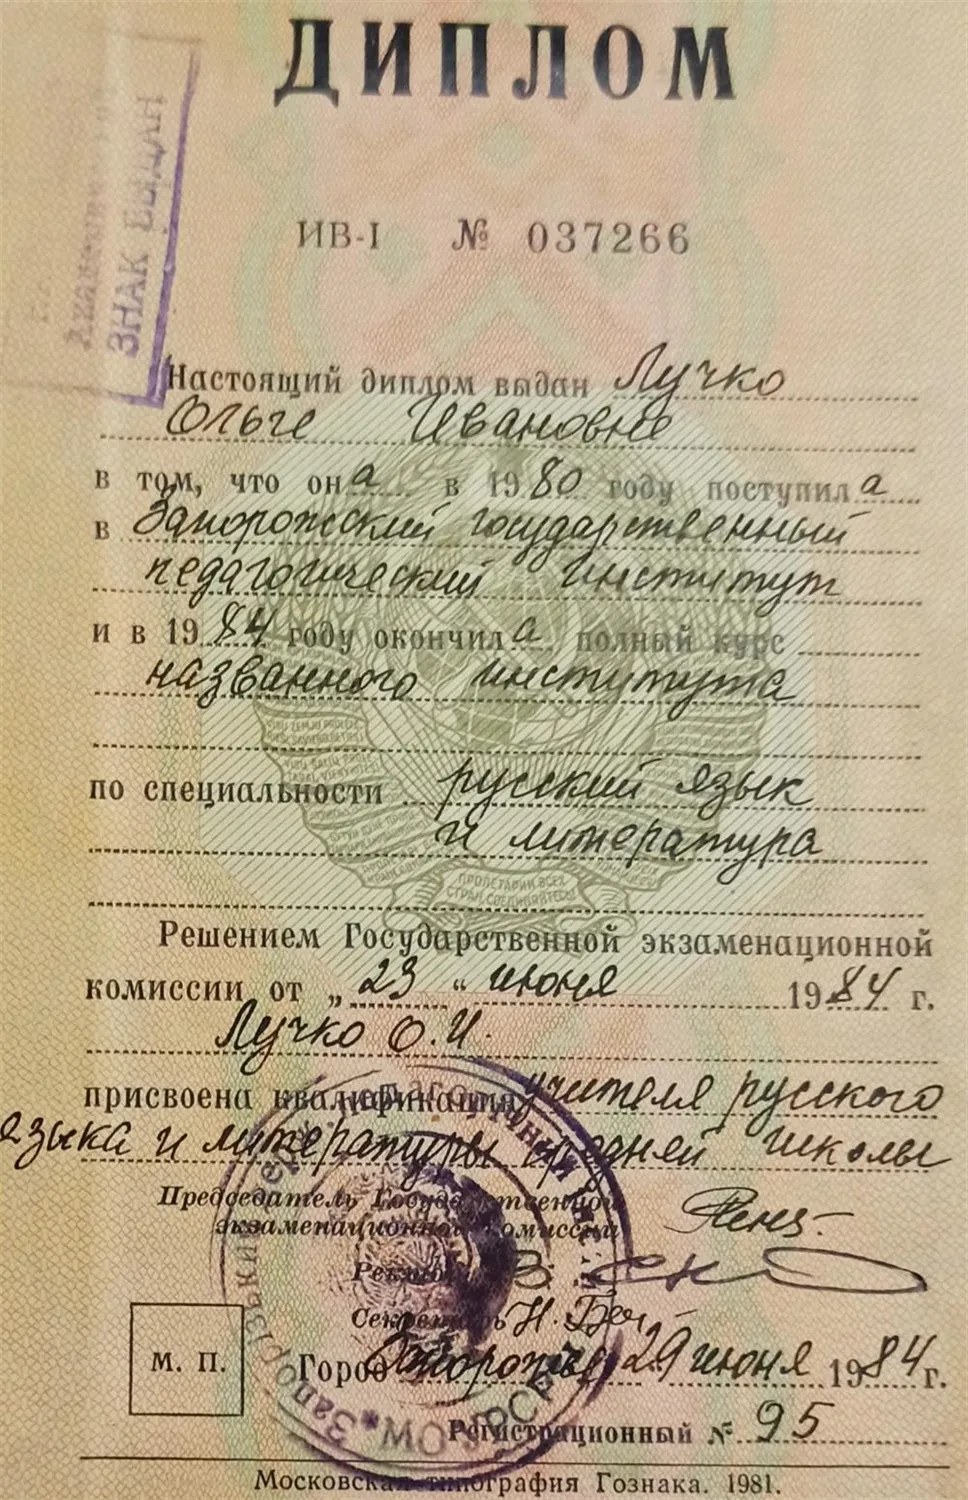 ДИПЛОМ
ЗНАК ВЫДАН
ИВ-I № 037266
Настоящий диплом выдан Лучко
Ольге Ивановне
в том, что она в 1980 году поступила
в Запорожский государственный
педагогический институт
и в 1984 году окончила полный курс
названного института
по специальности русский язык
и литература
ПРОЛЕТАРИИ ВСЕХ
СТРАН, СОЕДИНЯЙТЕСЬ!
Решением Государственной экзаменационной
комиссии от „23“ июня 1984 г.
Лучко О.И.
присвоена квалификация учителя русского
языка и литературы средней школы
Председатель Государственной
экзаменационной комиссии
Ректор
Секретарь
М. П.
Город Запорожье 29 июня 1984 г.
Регистрационный № 95
Московская типография Гознака. 1981.